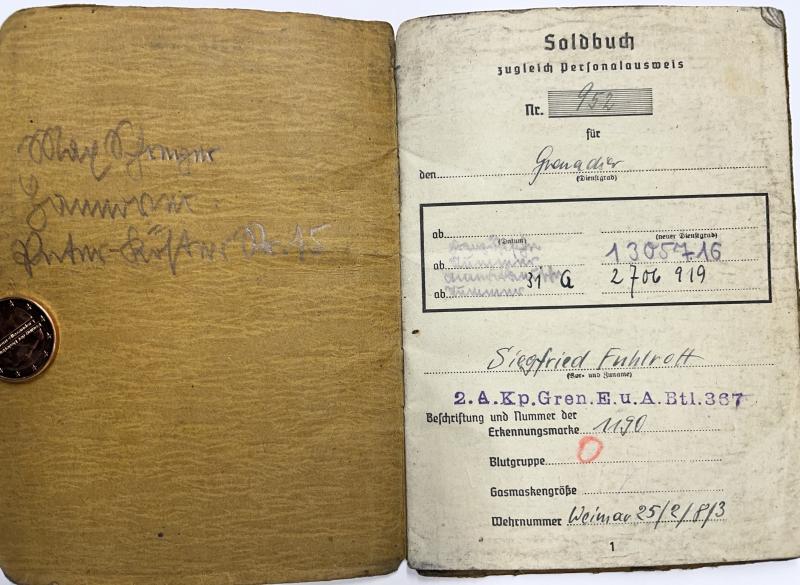 Max
Hannover.
Nr. 15
Soldbuch
zugleich Personalausweis
Nr. 952
für
den Grenadier
(Dienstgrad)
ab
(Datum) (neuer Dienstgrad)
ab 1305716
31 A 2706 919
ab
Siegfried Fuhlrott
(Vor- und Zuname)
2.A.Kp.Gren.E.u.A.Btl.367
Beschriftung und Nummer der
Erkennungsmarke 1190
Blutgruppe O
Gasmaskengröße
Wehrnummer Weimar 25/2/8/3
1